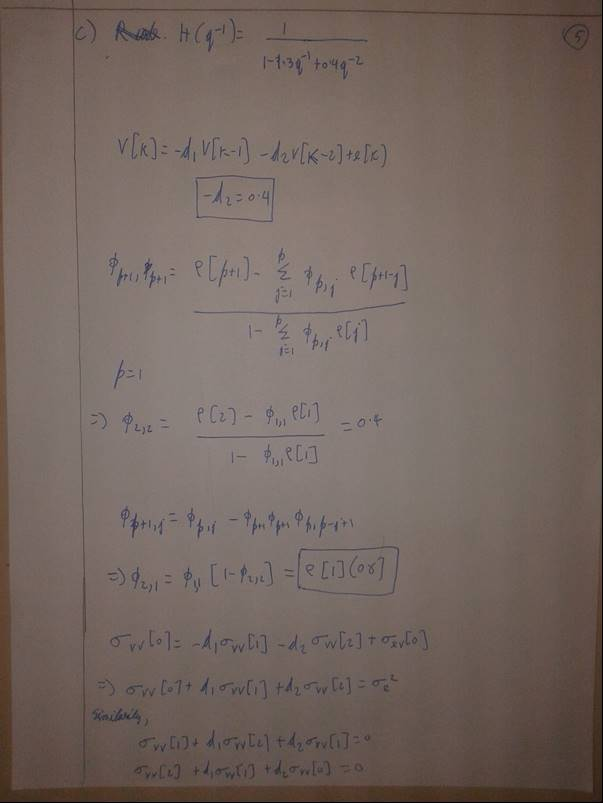 c) H(q⁻¹) = 1 / (1-1.3q⁻¹+0.4q⁻²)
5
V[k] = -d₁V[k-1] - d₂V[k-2] + e[k]
-d₂ = 0.4
ϕ_{p+1,p+1} = (ρ[p+1] - Σ_{j=1}^{p} ϕ_{p,j} ρ[p+1-j]) / (1 - Σ_{j=1}^{p} ϕ_{p,j} ρ[j])
p=1
=> ϕ_{2,2} = (ρ[2] - ϕ_{1,1}ρ[1]) / (1 - ϕ_{1,1}ρ[1]) = 0.4
ϕ_{p+1,j} = ϕ_{p,j} - ϕ_{p+1}ϕ_{p+1}ϕ_{p,p-j+1}
=> ϕ_{2,1} = ϕ_{1,1}[1-ϕ_{2,2}] = ρ[1](08]
σ_vv[0] = -d₁σ_vv[1] - d₂σ_vv[2] + σ_ev[0]
=> σ_vv[0] + d₁σ_vv[1] + d₂σ_vv[2] = σ_e²
Similarity,
σ_vv[1] + d₁σ_vv[2] + d₂σ_vv[1] = 0
σ_vv[2] + d₁σ_vv[1] + d₂σ_vv[0] = 0